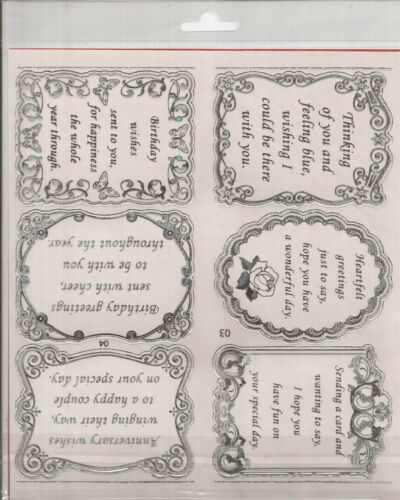 Birthday
wishes
sent to you,
for happiness
the whole
year through.
Thinking
of you and
feeling blue,
wishing I
could be there
with you.
Birthday greetings
sent with cheer,
to be with you
throughout the year.
04
Heartfelt
greetings
just to say,
hope you have
a wonderful day.
03
Anniversary wishes
winging their way,
to a happy couple
on your special day.
Sending a card and
wanting to say,
I hope you
have fun on
your special day.